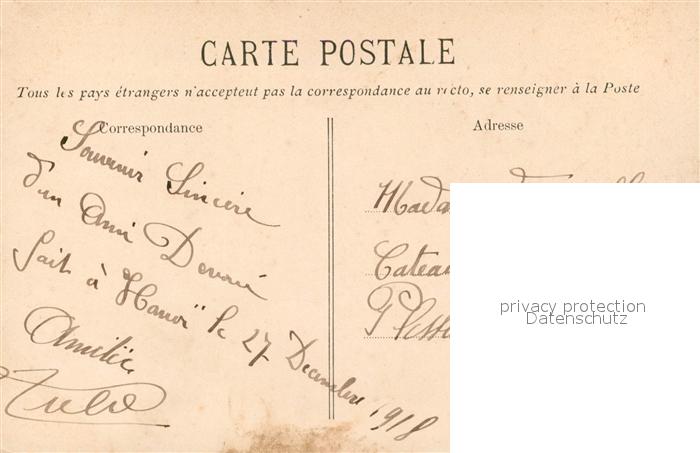 CARTE POSTALE
Tous les pays étrangers n'acceptent pas la correspondance au recto, se renseigner à la Poste
Correspondance
Souvenir Sincère
d'un Ami Dévoué
fait à Hanoï le 27 Décembre 1918
Amitié
Adresse
privacy protection
Datenschutz